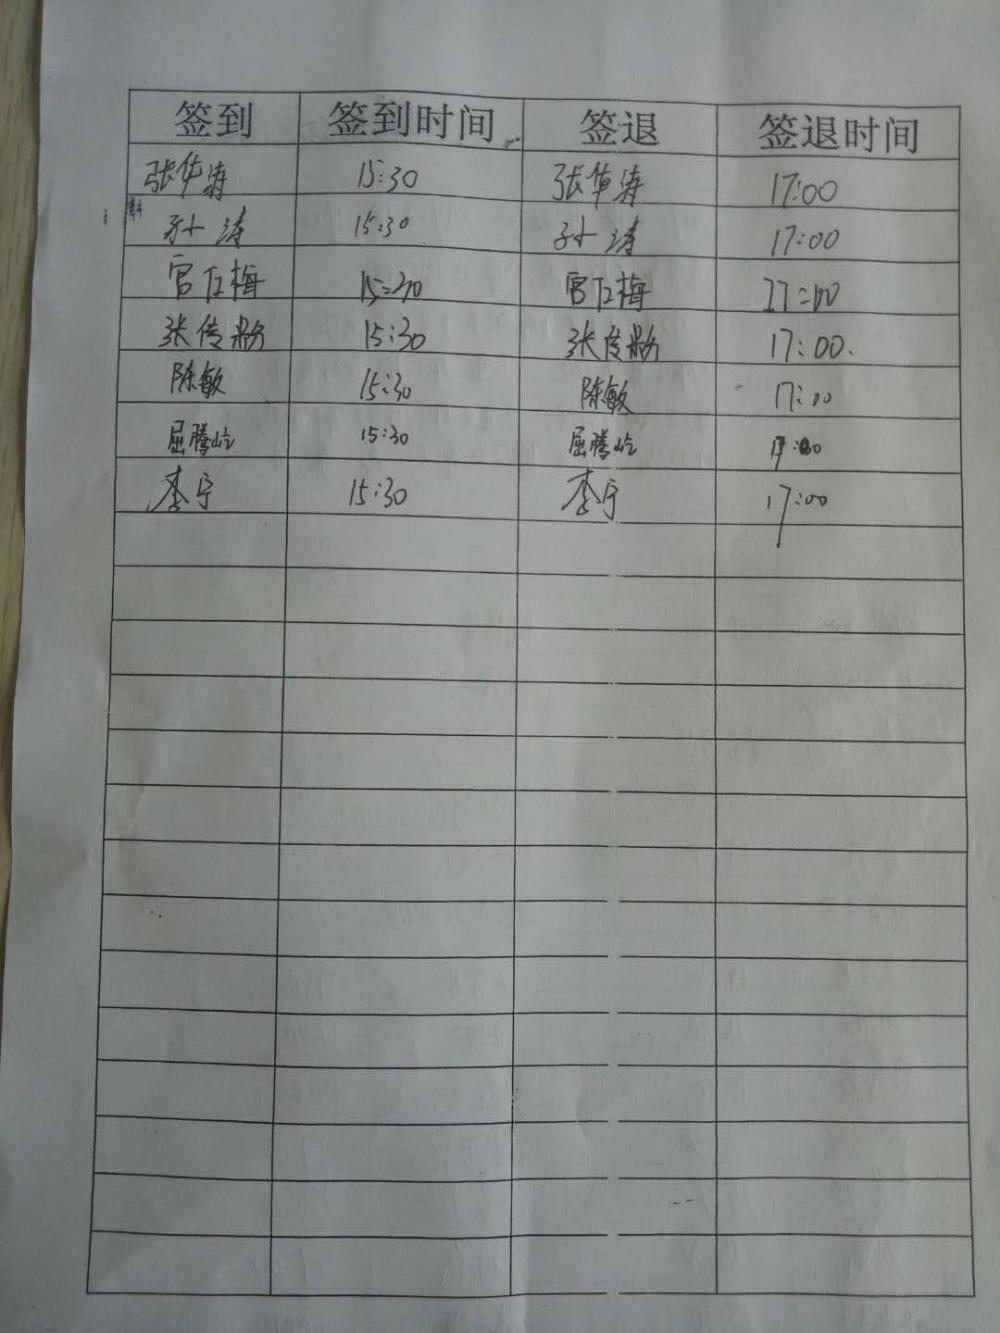 签到 签到时间 签退 签退时间
张华涛 15:30 张华涛 17:00
孙涛 15:30 孙涛 17:00
官 梅 15:30 官 梅 17:00
张传 15:30 张传 17:00.
陈敏 15:30 陈敏 17:00
屈腾屹 15:30 屈腾屹 17:00
李宁 15:30 李宁 17:00